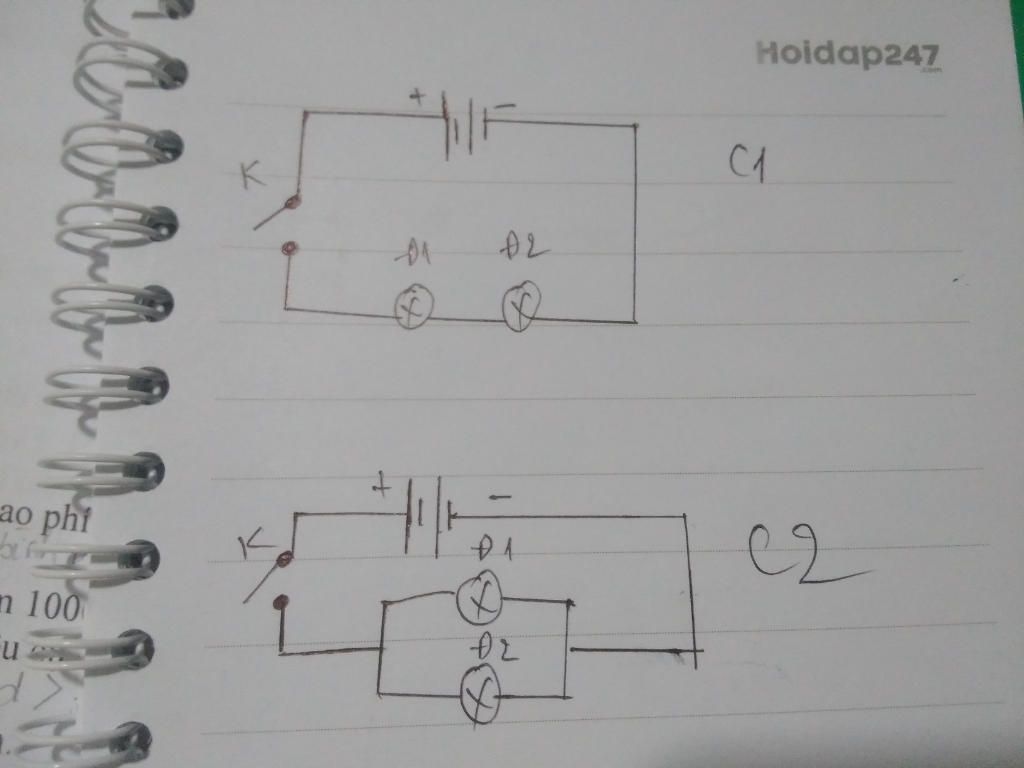 Hoidap247
.com
+ -
C1
K
Đ1 Đ2
+ -
K
Đ1
C2
Đ2
ao phí
n 100
d >